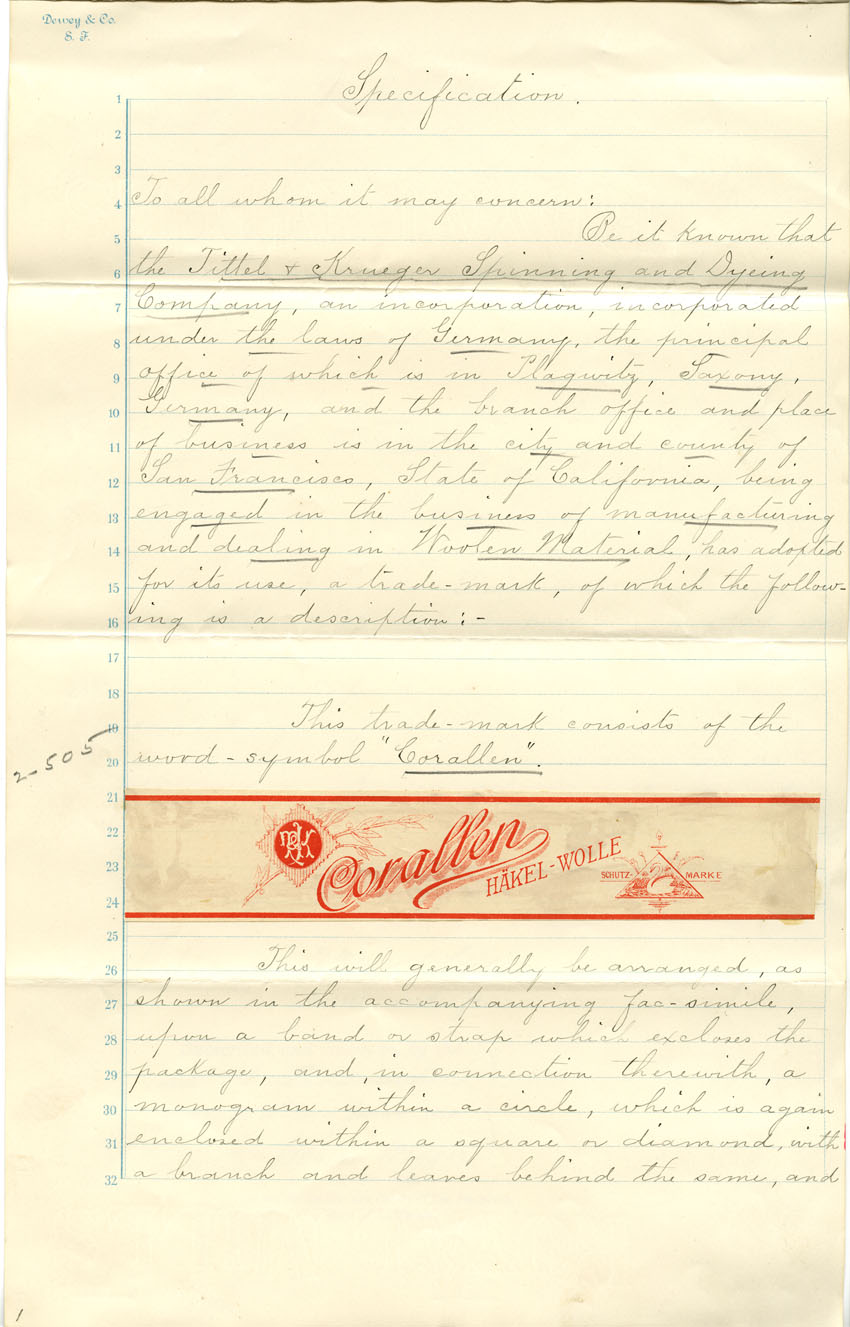 Dewey & Co.
S. F.
Specification.
1
2
3
4 To all whom it may concern:
5 Be it known that
6 the Tittel & Krueger Spinning and Dyeing
7 Company, an incorporation, incorporated
8 under the laws of Germany, the principal
9 office of which is in Plagwitz, Saxony,
10 Germany, and the branch office and place
11 of business is in the city and county of
12 San Francisco, State of California, being
13 engaged in the business of manufacturing
14 and dealing in Woolen Material, has adopted
15 for its use, a trade-mark, of which the follow-
16 ing is a description:-
17
18
19 This trade-mark consists of the
20 word-symbol "Corallen".
2-505
21
22
23
24
Corallen
HÄKEL-WOLLE
SCHUTZ- MARKE
25
26 This will generally be arranged, as
27 shown in the accompanying fac-simile,
28 upon a band or strap which excloses the
29 package, and, in connection therewith, a
30 monogram within a circle, which is again
31 enclosed within a square or diamond, with
32 a branch and leaves behind the same, and
1